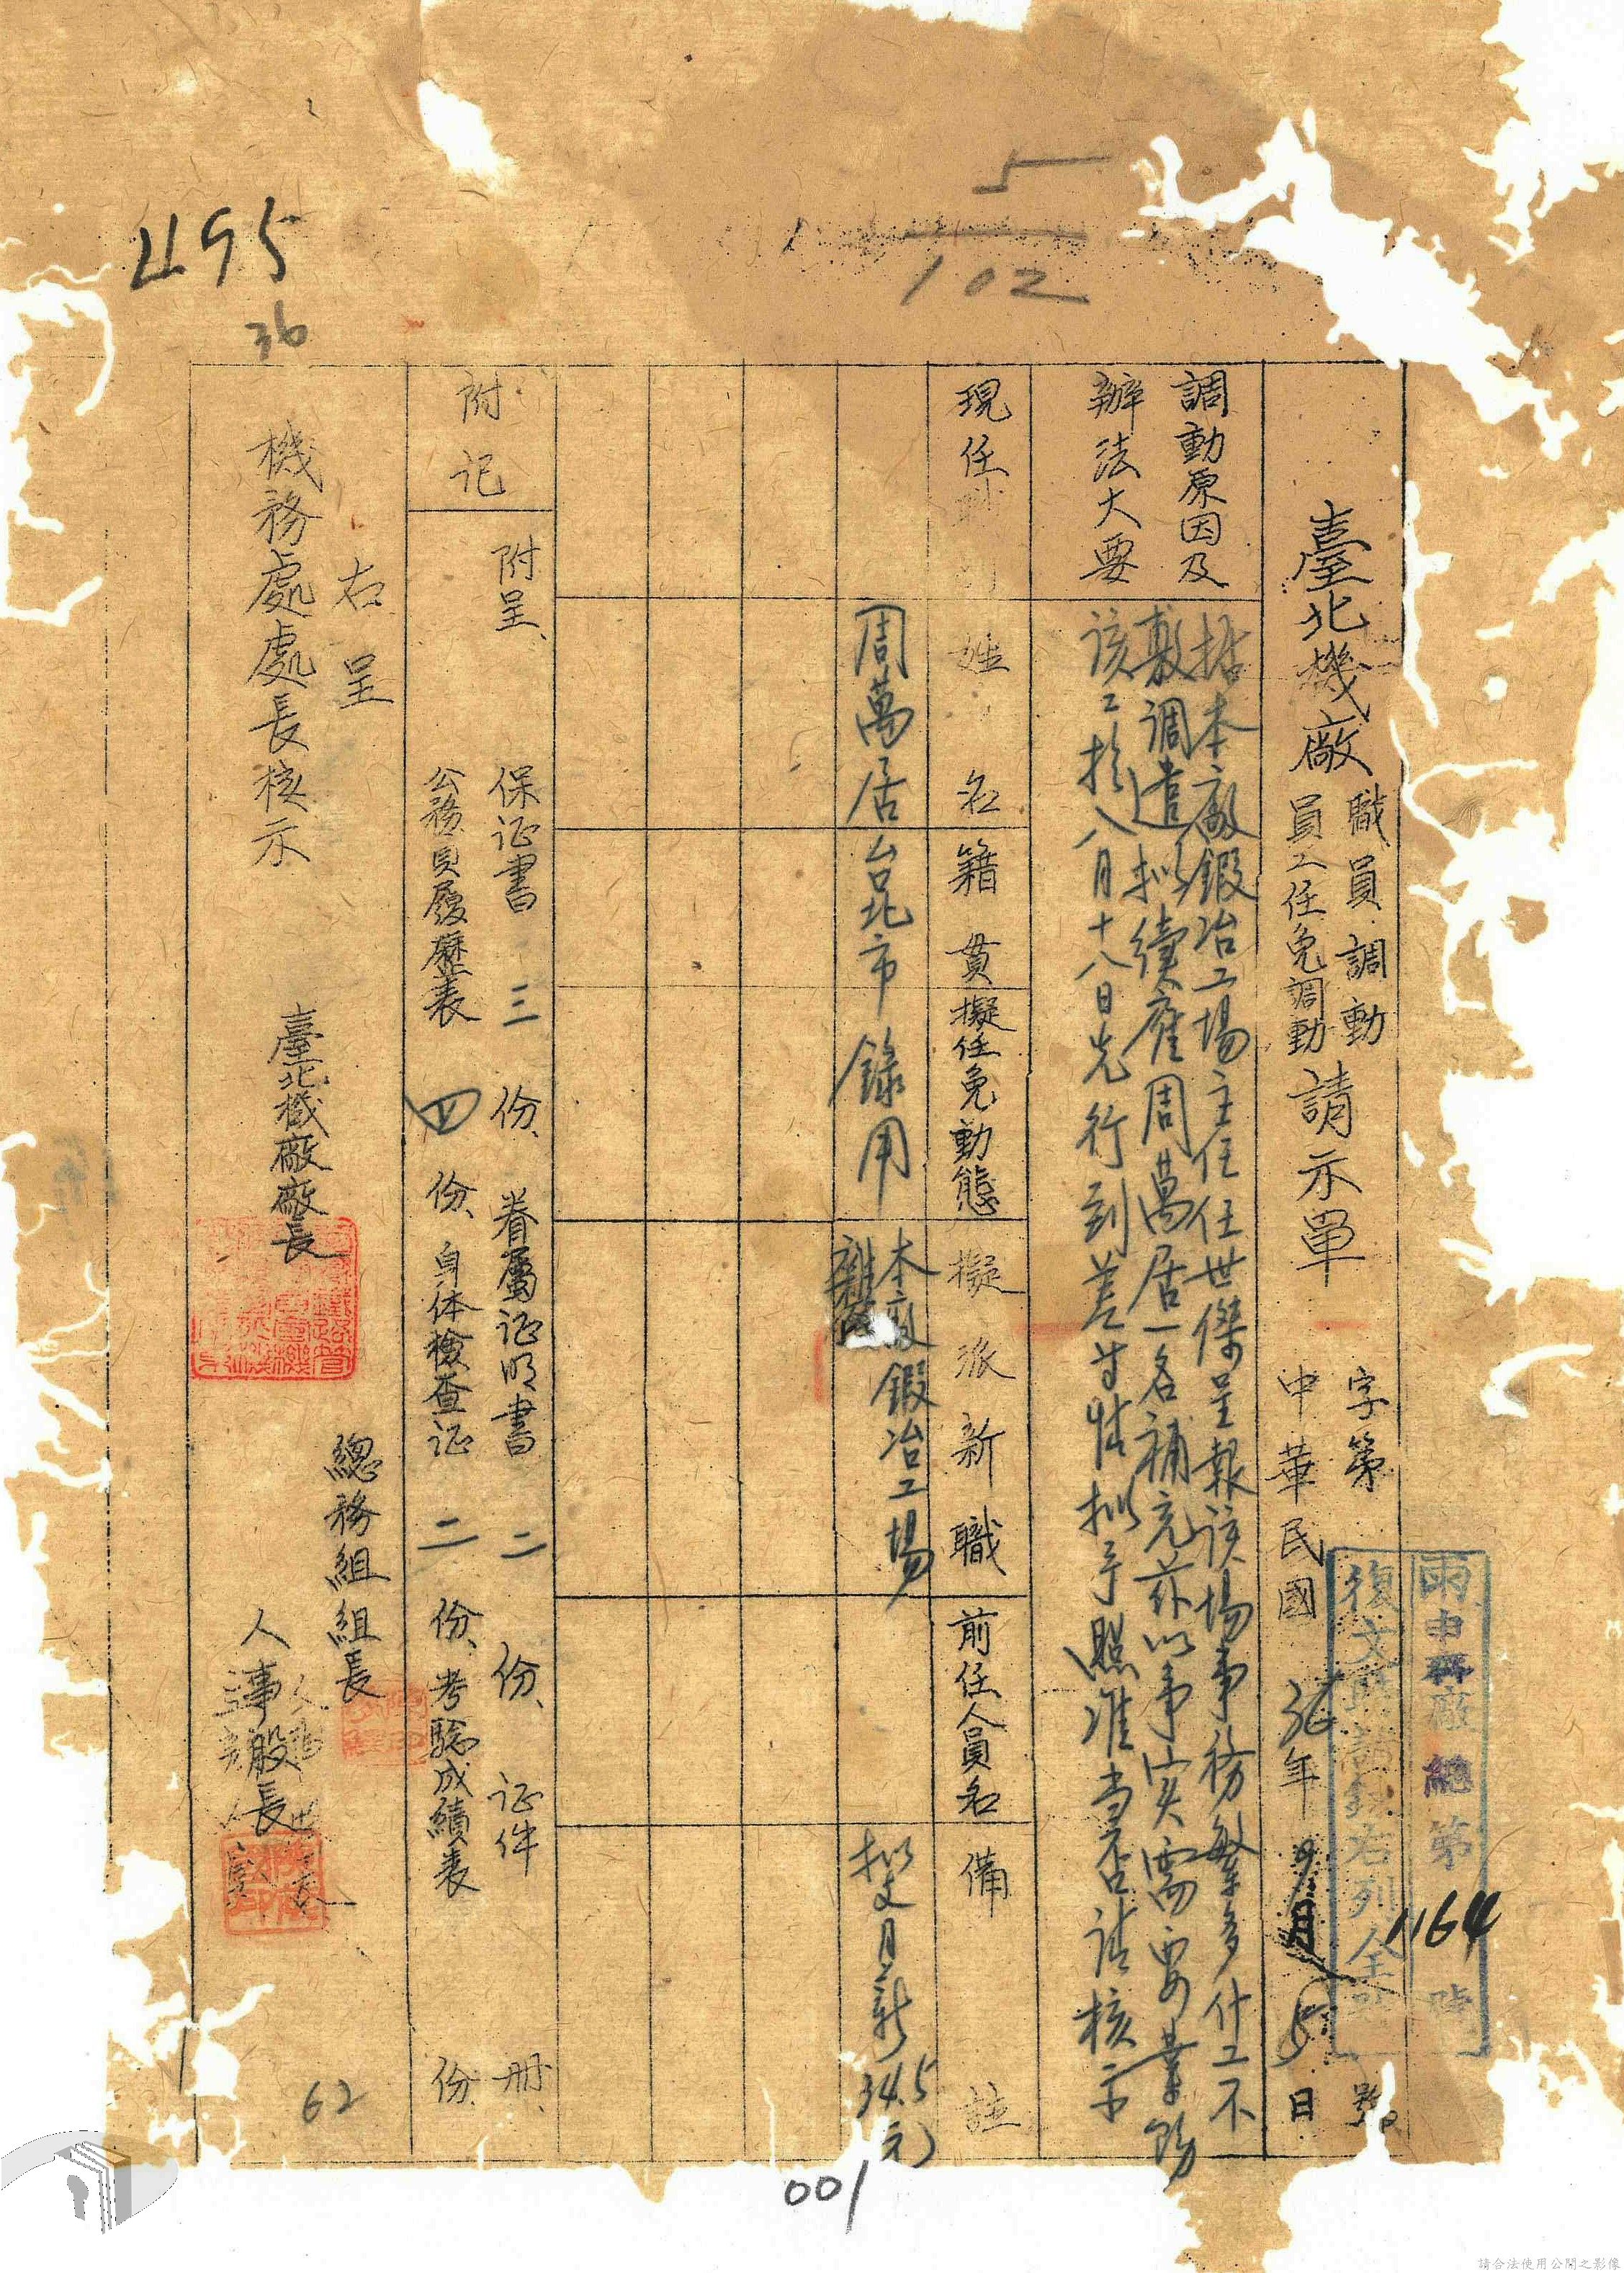 5
102
4195
36
臺北機廠
職員調動
員工任免調動
請示單
字第
號
中華民國36年9月5日
廠總第
1164
復文時請錄右列全號
調動原因及
辦法大要
據本廠鍛冶工場主任任世傑呈報該場事務繁多什工不
敷調遣擬續雇周萬居一名補充茲以事实需要業飭
該工於八月十八日先行到差等情擬予照准當否請核示
現任
姓名
籍貫
擬任免動態
擬派新職
前任人員名
備註
周萬居
台北市
錄用
本廠鍛冶工場
擬支月薪34.5元
附记
附呈、保证書三份、眷屬证明書二份、证件册、
公務員履歷表四份、自体檢查证二份、考驗成績表份
右呈
機務處處長核示
臺北機廠廠長
總務組組長
人事股長
62
001
請合法使用公開之影像